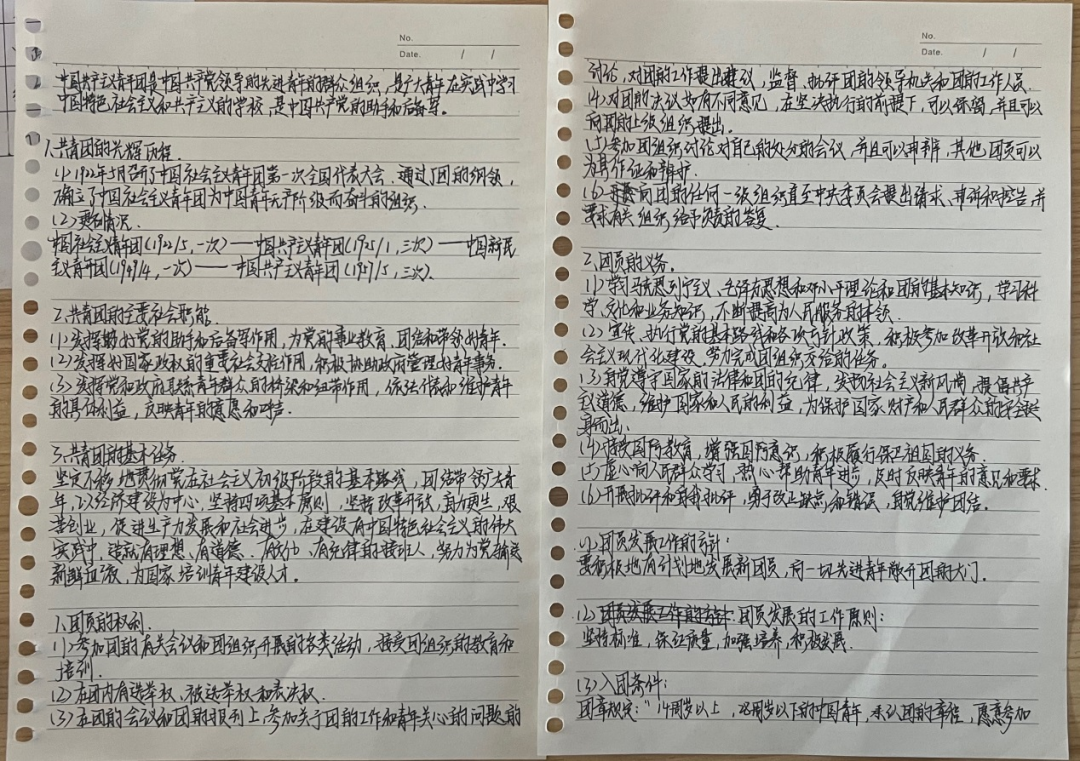 No.
Date. / /
中国共产主义青年团是中国共产党领导的先进青年的群众组织，是广大青年在实践中学习
中国特色社会主义和共产主义的学校，是中国共产党的助手和后备军。
1.共青团的光辉历程.
(1) 1922年5月召开了中国社会主义青年团第一次全国代表大会，通过了团的纲领，
确立了中国社会主义青年团为中国青年无产阶级而奋斗的组织.
(2) 更名情况.
中国社会主义青年团(1922/5，一次)——中国共产主义青年团(1925/1，三次)——中国新民
主义青年团(1949/4，一次)——中国共产主义青年团(1957/5，三次).
2.共青团的主要社会职能.
(1) 发挥好党的助手和后备军作用，为党的事业教育，团结和带领好青年.
(2) 发挥好国家政权的重要社会支柱作用，积极协助政府管理好青年事务.
(3) 发挥党和政府联系青年群众的桥梁和纽带作用，依法代表和维护青年
的具体利益，反映青年的意愿和呼声.
3.共青团的基本任务.
坚定不移地贯彻党在社会主义初级阶段的基本路线，团结带领广大青
年，以经济建设为中心，坚持四项基本原则，坚持改革开放，自力更生，艰
苦创业，促进生产力发展和社会进步，在建设有中国特色社会主义的伟大
实践中，造就有理想、有道德、有文化、有纪律的接班人，努力为党输送
新鲜血液，为国家培训青年建设人才.
1.团员的权利.
(1) 参加团的有关会议和团组织开展的各类活动，接受团组织的教育和
培训.
(2) 在团内有选举权、被选举权和表决权.
(3) 在团的会议和团的报刊上，参加关于团的工作和青年关心的问题的
No.
Date. / /
讨论，对团的工作提出建议，监督、批评团的领导机关和团的工作人员.
(4) 对团的决议如有不同意见，在坚决执行的前提下，可以保留，并且可以
向团的上级组织提出.
(5) 参加团组织讨论对自己的处分的会议，并且可以申辩，其他团员可以
为其作证和辩护.
(6) 向团的任何一级组织直至中央委员会提出请求、申诉和控告，并
要求有关组织给予负责的答复.
2.团员的义务.
(1) 学习马克思列宁主义、毛泽东思想和邓小平理论和团的基本知识，学习科
学、文化和业务知识，不断提高为人民服务的本领.
(2) 宣传、执行党的基本路线和各项方针政策，积极参加改革开放和社
会主义现代化建设，努力完成团组织交给的任务.
(3) 自觉遵守国家的法律和团的纪律，发扬社会主义新风尚，提倡共产
主义道德，维护国家和人民的利益，为保护国家财产和人民群众的安全挺
身而出.
(4) 接受国防教育，增强国防意识，积极履行保卫祖国的义务.
(5) 虚心向人民群众学习，热心帮助青年进步，及时反映青年的意见和要求.
(6) 开展批评和自我批评，勇于改正缺点和错误，自觉维护团结.
(1) 团员发展工作的方针：
要积极地有计划地发展新团员，向一切先进青年敞开团的大门.
(2) 团员发展工作的方针：团员发展的工作原则：
坚持标准，保证质量，加强培养，积极发展.
(3) 入团条件：
团章规定："14周岁以上，28周岁以下的中国青年，承认团的章程，愿意参加